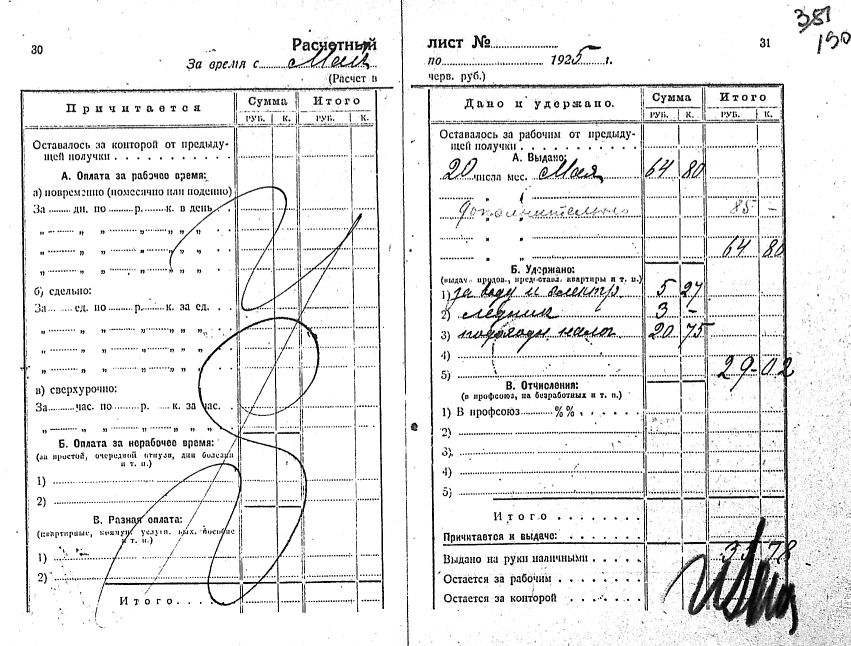 351
190
30
Расчетный
За время с Май
(Расчет в
Причитается
Сумма
Итого
РУБ. К. РУБ. К.
Оставалось за конторой от предыду-
щей получки
А. Оплата за рабочее время:
а) повременно (помесячно или поденно)
За дн. по р. к. в день
„ „ „ „ „ „ „
„ „ „ „ „ „ „
„ „ „ „ „ „ „
б) сдельно:
За ед. по р. к. за ед.
„ „ „ „ „ „ „
„ „ „ „ „ „ „
„ „ „ „ „ „ „
в) сверхурочно:
За час. по р. к. за час.
„ „ „ „ „ „ „
Б. Оплата за нерабочее время:
(за простой, очередной отпуск, дни болезни
и т. п.)
1)
2)
В. Разная оплата:
и т. п.)
1)
2)
Итого
лист №
31
по 1925 г.
черв. руб.)
Дано и удержано.
Сумма
Итого
РУБ. К. РУБ. К.
Оставалось за рабочим от предыду-
щей получки
А. Выдано:
20 числа мес. Мая 64 80
„ „
Дополнительно 85 -
„ „
„ „ 64 80
Б. Удержано:
(выдач. продов., предоставл. квартиры и т. п.)
1) за воду и электр 5 27
2) ледник 3 -
3) подоходн налог 20 75
4)
5) 29-02
В. Отчисления:
(в профсоюз, на безработных и т. п.)
1) В профсоюз %%
2)
3)
4)
5)
Итого
Причитается к выдаче:
Выдано на руки наличными 35 78
Остается за рабочим
Остается за конторой